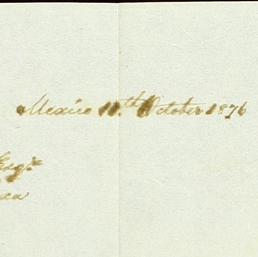 Mexico 10th October 1876
Esqr.